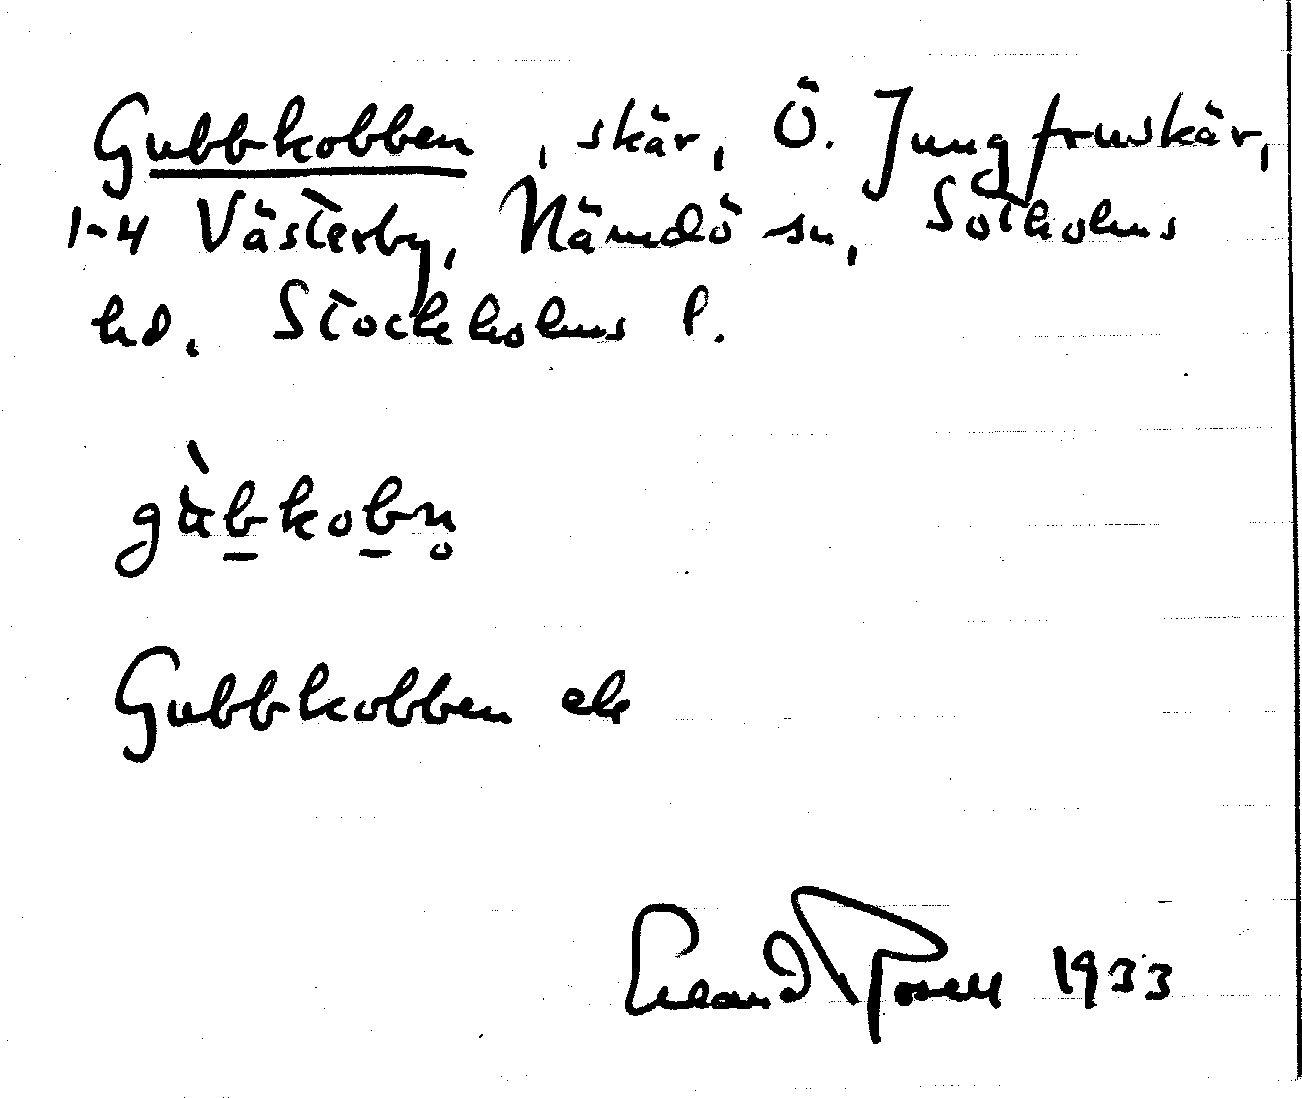 Gubbkobben, skär, Ö. Jungfruskär,
1-4 Västerby, Nämdö sn, Sotholms
hd. Stockholms l.
gùb̲kob̲n̥
Gubbkobben ek
Erland Rosell 1933